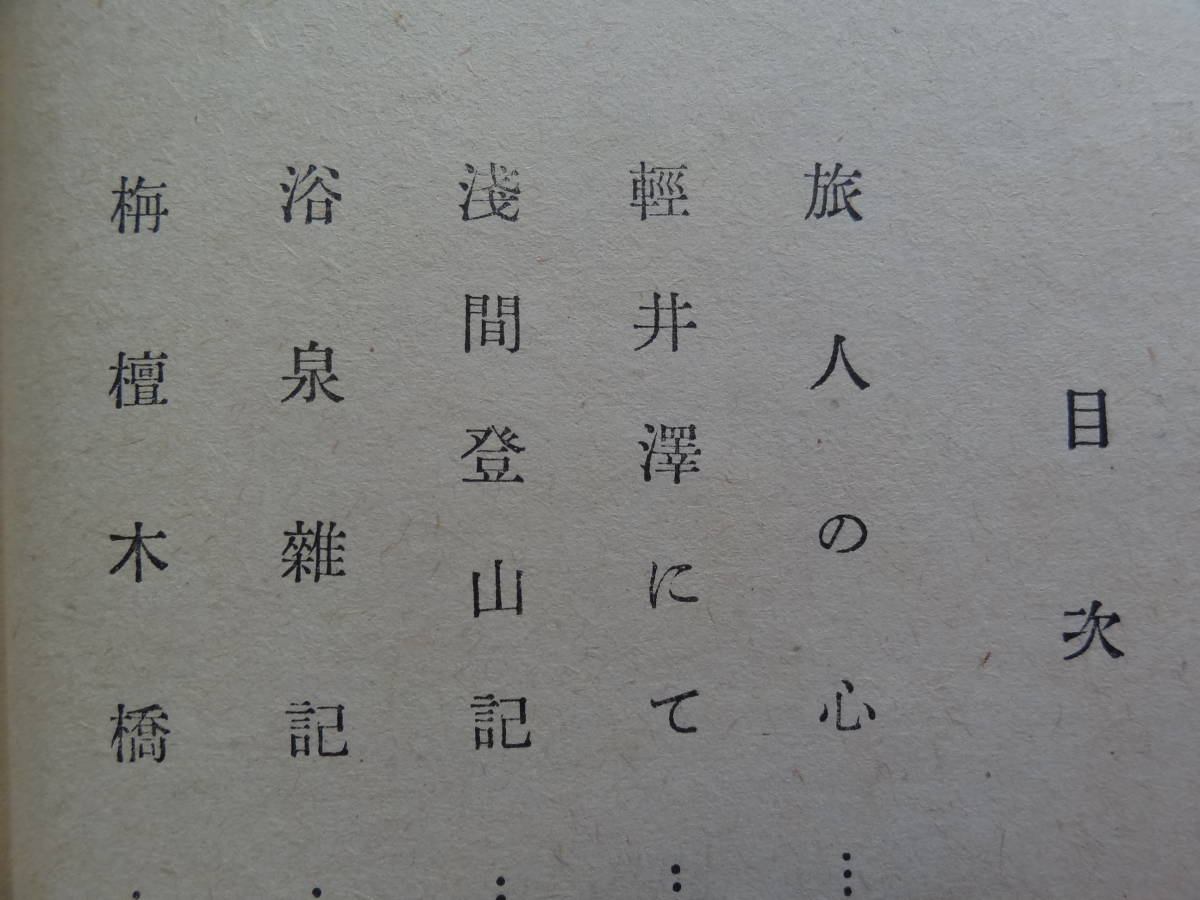 目次
旅人の心…
輕井澤にて…
淺間登山記…
浴泉雜記…
栴檀木橋…